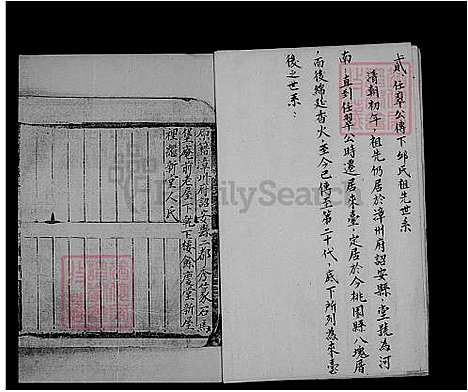 貳、任翠公傳下邱氏祖先世系
清朝初年,祖先仍居於漳州府詔安縣,堂號為河
南,直到任翠公時遷居來臺,定居於今桃園縣八塊厝
,而後綿延香火至今已傳至第二十代,底下所列為來臺
後之世系:
原籍漳州府詔安縣二都秀篆石馬
堡庵前老屋下乾下樓餘慶堂新屋
裡憩新堂人氏
FamilySearch